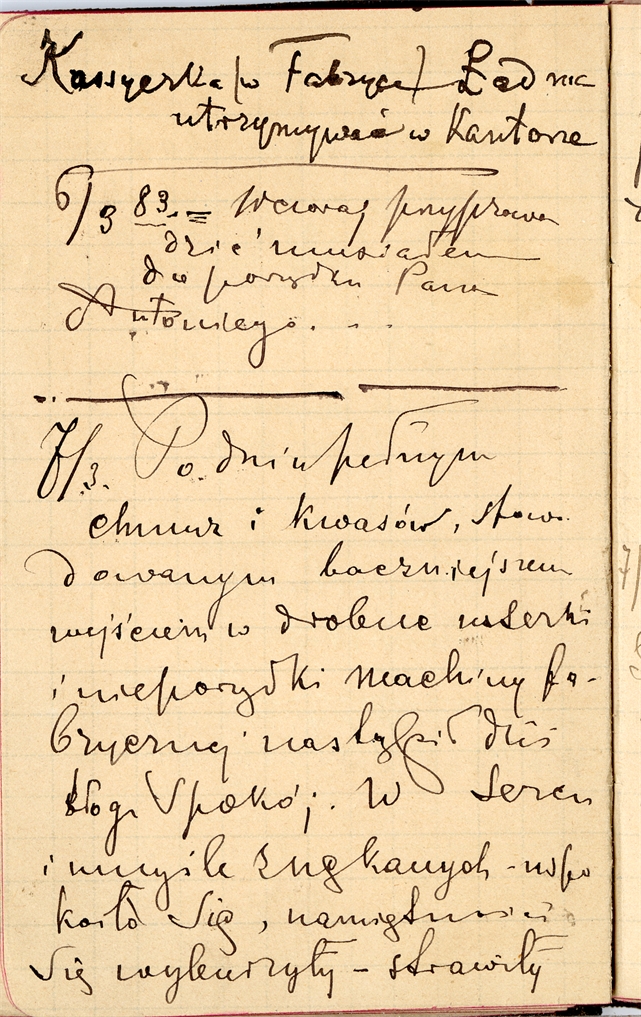 Kassyerka (w Fabryce) Ład
utrzymywać w Kantorze
6/3 83. = Wczoraj
dziś musiałem
do porządku Pana
Antoniego. . .
7/3. Po dniu pełnym
chmur i kwasów, spowo
dowanym baczniejszem
wejściem w drobne usterki
i nieporządki machiny fa-
brycznej nastąpił dziś
błogi Spokój. W Sercu
i umyśle znękanych - uspo
koiło się, namiętności
się wyburzyły - strawiły